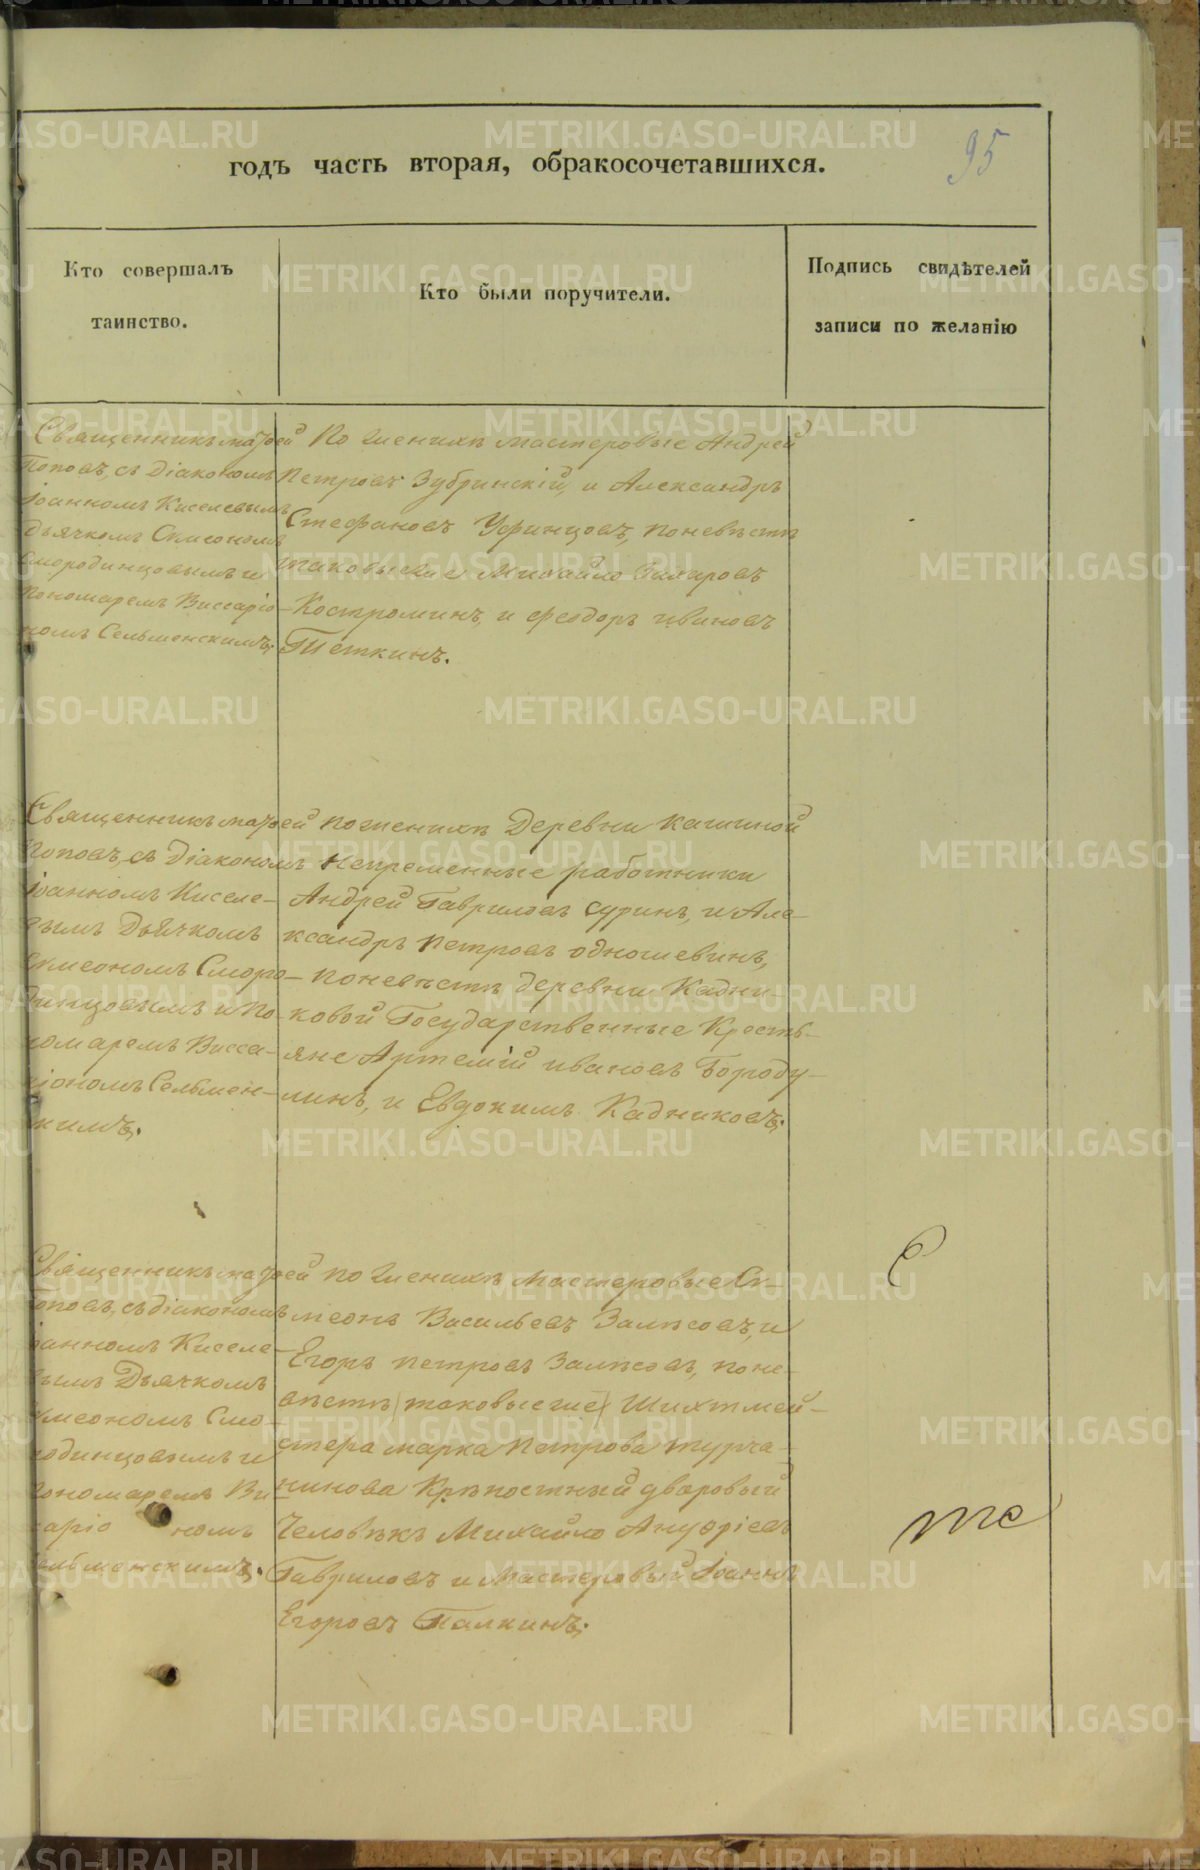 95
годъ часть вторая, обракосочетавшихся.
Кто совершалъ
таинство.
Кто были поручители.
Подпись свидѣтелей
записи по желанію
Священникъ Матѳей
Поповъ, съ Діакономъ
Іоанномъ Киселевымъ
Дьячкомъ Симеономъ
Смородинцовымъ и
Пономаремъ Виссаріо-
номъ Сельменскимъ;
По Женихѣ мастеровые Андрей
Петровъ Зубринскій, и Александръ
Стефановъ Уфинцовъ, по невѣстѣ
таковые же Михайло Захаровъ
Костроминъ, и Феодоръ Ивановъ
Теткинъ.
Священникъ Матѳей
Поповъ, съ Діакономъ
Іоанномъ Киселе-
вымъ Дьячкомъ
Симеономъ Сморо-
динцовымъ и По-
номаремъ Висса-
ріономъ Сельмен-
скимъ;
по женихѣ Деревни Кашиной
Непременные работники
Андрей Гавриловъ Суринъ, и Але-
ксандръ Петровъ Одношевинъ,
по невѣстѣ деревни Кадни-
ковой Государственные Кресть-
яне Артемій Ивановъ Бороду-
линъ, и Евдокимъ Кадниковъ;
Священникъ Матѳей
Поповъ, съ діакономъ
Іоанномъ Киселе-
вымъ Дьячкомъ
Симеономъ Смо-
родинцовымъ и
Пономаремъ Ви
саріономъ
Сельменскимъ;
по Женихѣ Мастеровые Си-
меонъ Васильевъ Залѣсовъ, и
Егоръ Петровъ Залѣсовъ, по не-
вѣстѣ (таковые же) Шихтмей-
стера Марка Петрова Турча-
нинова Крѣпостный дворовый
Человѣкъ Михайло Ануфріевъ
Гавриловъ и Мастеровый Іоаннъ
Егоровъ Палкинъ;
METRIKI.GASO-URAL.RU